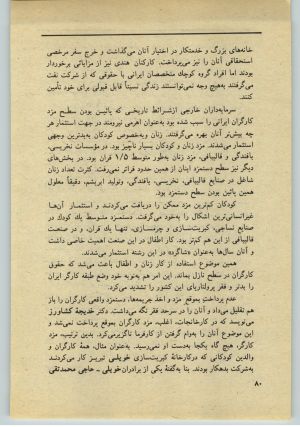 خانه‌های بزرگ و خدمتکار در اختیار آنان می‌گذاشت و خرج سفر مرخصی
استحقاقی آنان را نیز می‌پرداخت. کارکنان هندی نیز از مزایائی برخوردار
بودند اما افراد گروه کوچک متخصصان ایرانی با حقوقی که از شرکت نفت
می‌گرفتند به‌هیچ وجه نمی‌توانستند زندگی نسبتاً قابل قبولی برای خود تأمین
کنند.
سرمایه‌داران خارجی ازشرائط تاریخی که پائین بودن سطح مزد
کارگران ایرانی را سبب شده بود به‌عنوان اهرمی نیرومند در جهت استثمار هر
چه بیش‌تر آنان بهره می‌گرفتند. زنان وبه‌خصوص کودکان به‌بدترین وجهی
استثمار می‌شدند. مزد زنان و کودکان بسیار ناچیز بود. در مؤسسات نخریسی،
بافندگی و قالیبافی، مزد زنان به‌طور متوسط ۱/۵ قران بود. در بخش‌های
دیگر نیز سطح دستمزد اینان از همین حدود فراتر نمی‌رفت. کثرت تعداد زنان
شاغل در صنایع قالیبافی، نخریسی، بافندگی، وتولید ابریشم، دقیقاً معلول
همین پائین بودن سطح دستمزد بود.
کودکان کم‌ترین مزد ممکن را دریافت می‌کردند و استثمار آن‌ها
غیرانسانی‌ترین اشکال را به‌خود می‌گرفت. دستمزد متوسط یك کودك در
صنایع نساجی، کبریت‌سازی و چرمسازی، تنها یك قران، و در صنعت
قالیبافی از این هم کم‌تر بود. کار اطفال در این صنعت اهمیت خاصی داشت
و آنان سال‌ها به‌عنوان «شاگرد» در این رشته استثمار می‌شدند.
همین موضوع استفاده از کار زنان و اطفال باعث می‌شد که حقوق
کارگران در سطح نازل بماند. این امر هم به‌نوبه خود وضع طبقه کارگر ایران
را بدتر و فقر پرولتاریای این کشور را تشدید می‌کرد.
عدم پرداخت به‌موقع مزد و اخذ جریمه‌ها، دستمزد واقعی کارگران را باز
هم تقلیل می‌داد و آنان را در سرحد فقر نگه می‌داشت. دکتر خدیجه کشاورز
می‌نویسد که در کارخانجات، اغلب، مزد کارگران به‌موقع پرداخت نمی‌شد و
این موضوع آنان را به‌وام گرفتن از کارفرما ناگزیر‌می‌کرد. بدین ترتیب، مزد
کارگر، هیچ گاه یکجا به‌دست او نمی‌رسید. به‌عنوان مثال، همهٔ کارگران و
والدین کودکانی که درکارخانهٔ کبریت‌سازی خویلی تبریز کار می‌کردند
به‌شرکت بدهکار بودند. بنا به‌گفتهٔ یکی از برادران خویلی ـ حاجی محمدتقی
۸۰